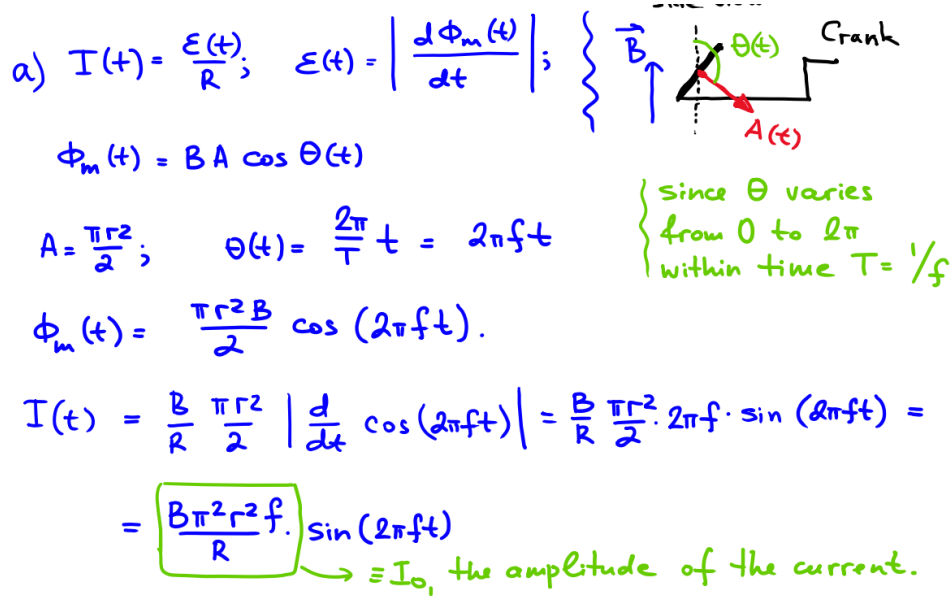 a) I(t) = ε(t)/R; ε(t) = |dΦₘ(t)/dt|;
B⃗ θ(t) Crank
A(t)
Φₘ(t) = B A cos θ(t)
since θ varies
from 0 to 2π
within time T = 1/f
A = πr²/2; θ(t) = 2π/T t = 2πft
Φₘ(t) = πr²B/2 cos (2πft).
I(t) = B/R πr²/2 |d/dt cos(2πft)| = B/R πr²/2 · 2πf · sin (2πft) =
= Bπ²r²f/R · sin(2πft)
≡ I₀, the amplitude of the current.